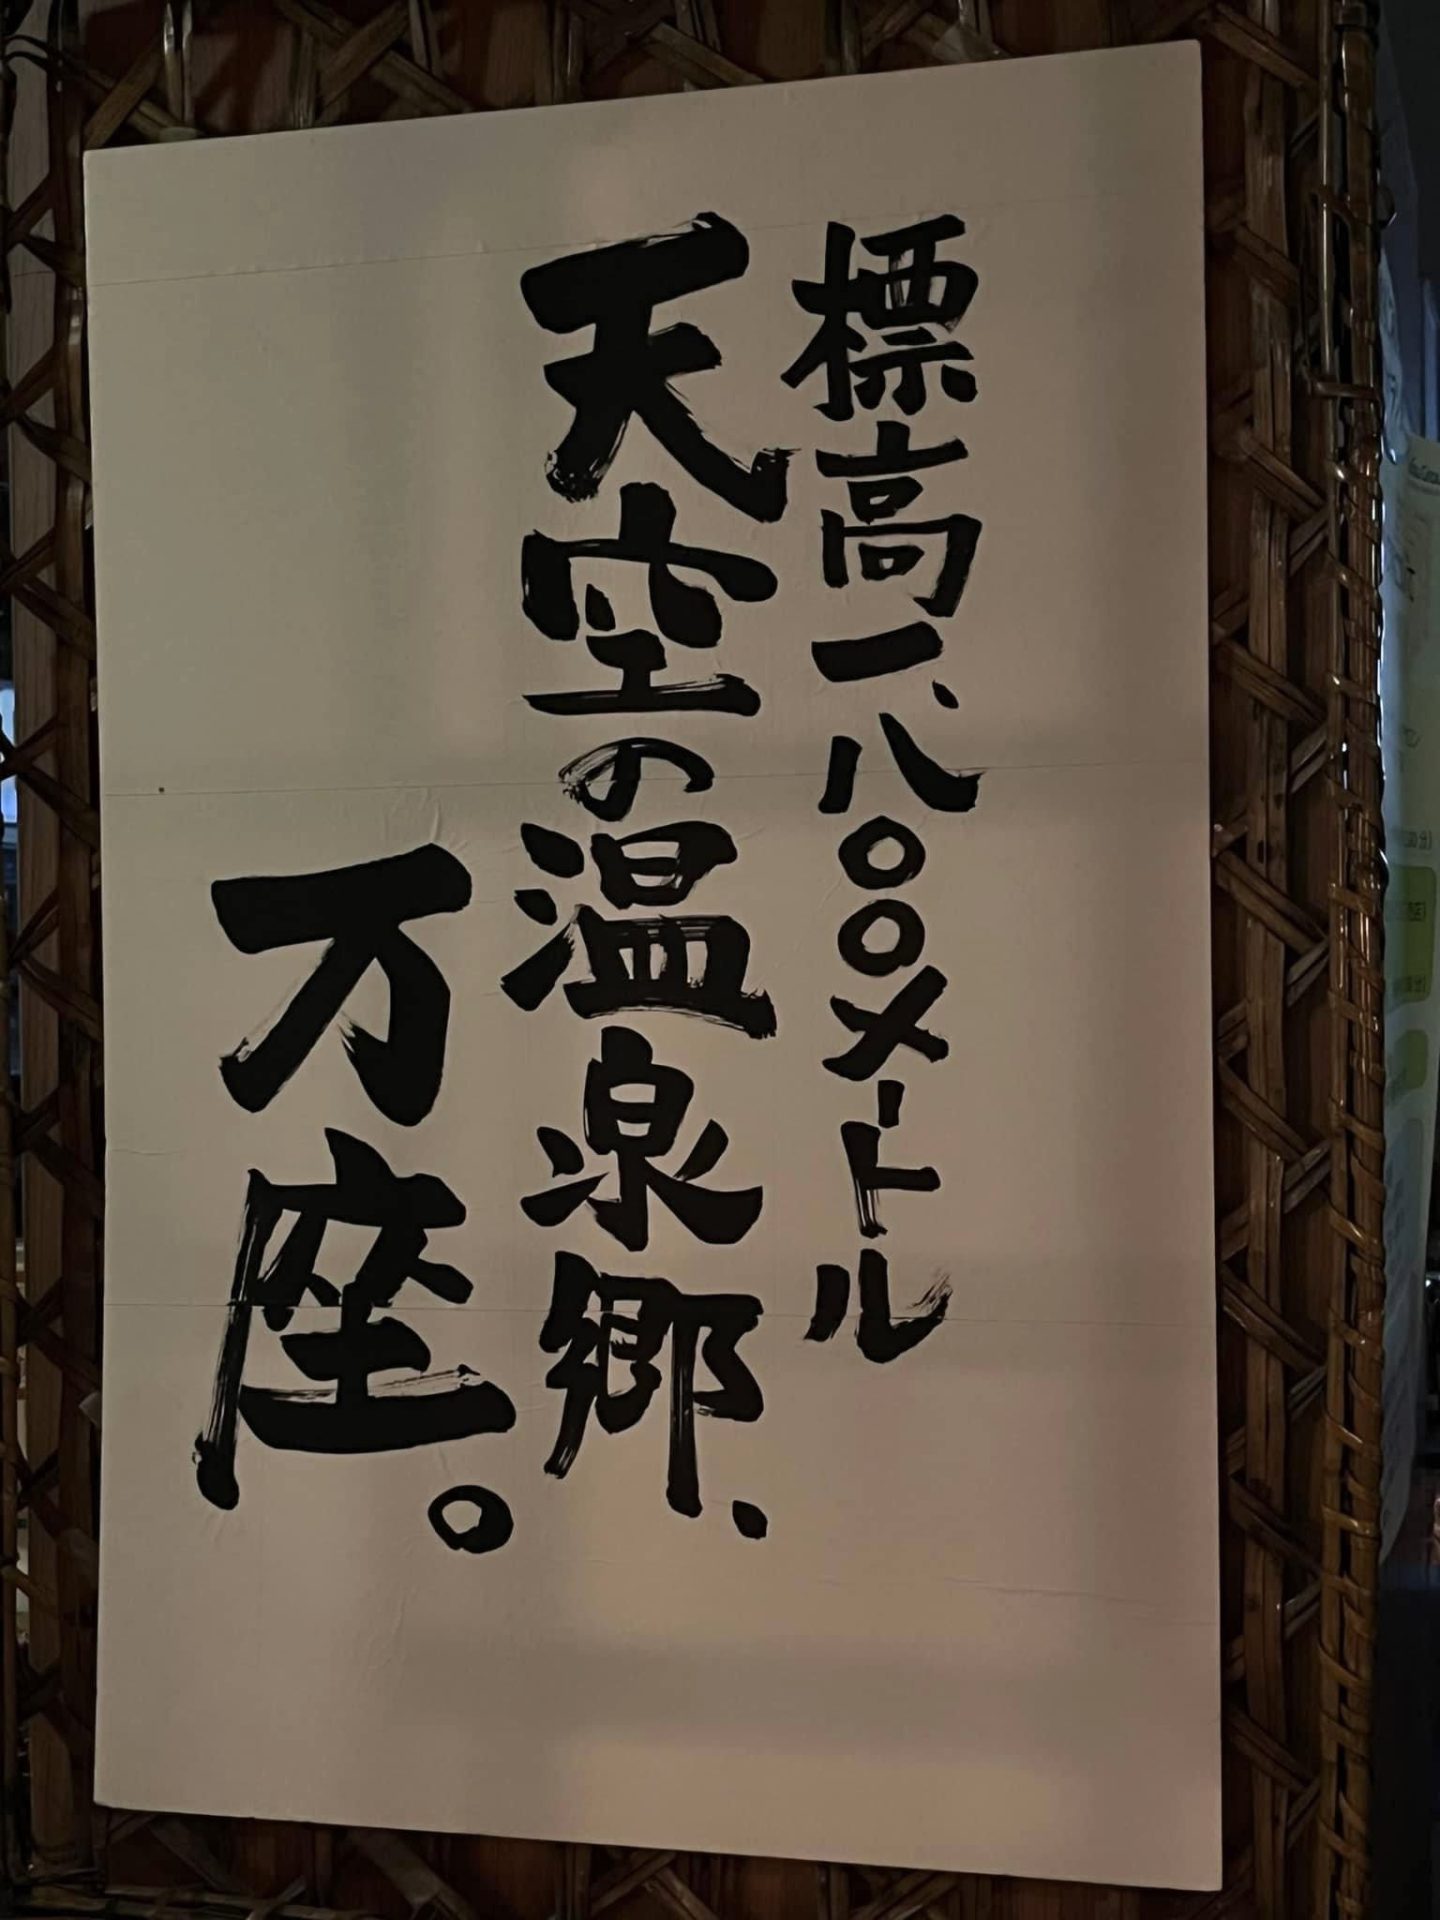 標高一、八〇〇メートル
天空の温泉郷、
万座。